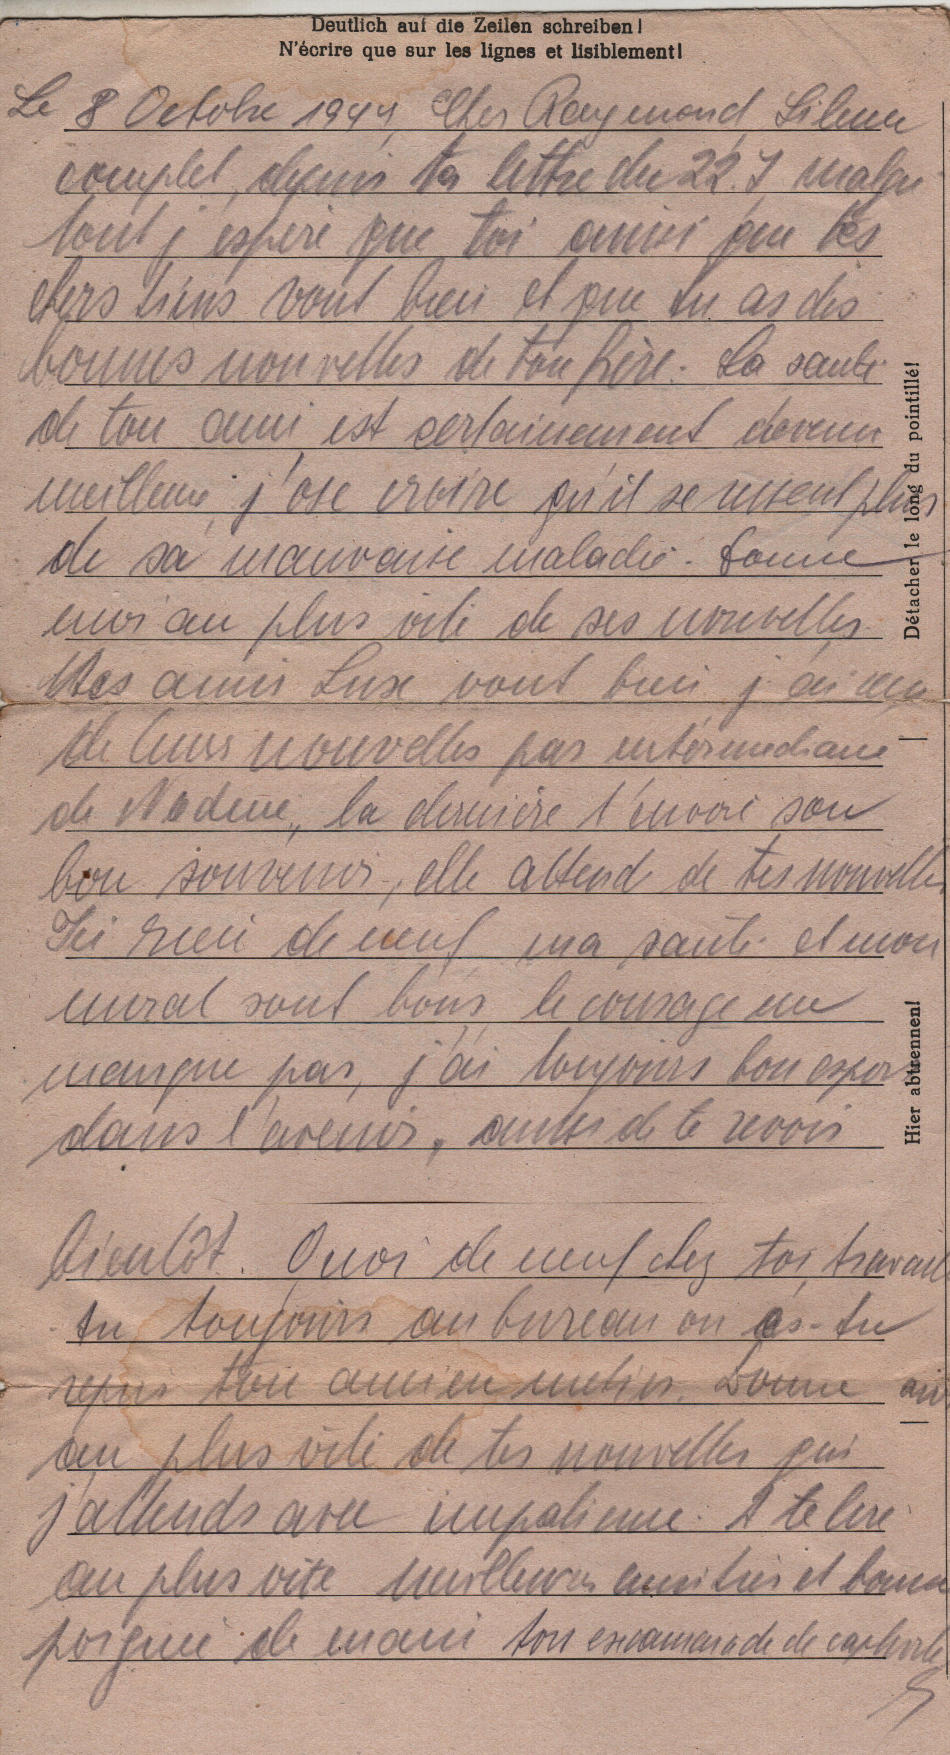 Deutlich auf die Zeilen schreiben!
N'écrire que sur les lignes et lisiblement!
Le 8 Octobre 1944 Cher Raymond, Silence
complet, depuis ta lettre du 22.7 malgré
tout j'espère que toi ainsi que tes
chers tiens vont bien et que tu as des
bonnes nouvelles de ton frère. La santé
de ton ami est certainement devenu
meilleure j'ose croire qu'il se ressent plus
de sa mauvaise maladie. Donne
moi au plus vite de ses nouvelles.
Mes amis Luxe vont bien j'ai
de leurs nouvelles par intermédiaire
de Nadine, la dernière t'envoie son
bon souvenir, elle attend de tes nouvelles
Ici rien de neuf ma santé et mon
moral sont bons le courage me
manque pas, j'ai toujours bon espoir
dans l'avenir, aussi de te revoir
bientôt. Quoi de neuf chez toi, travail
tu toujours au bureau ou as-tu
repris ton ancien metier. Donne
au plus vite de tes nouvelles que
j'attends avec impatience. A te lire
au plus vite meilleures amitiés et bonne
poignée de main ton excamarade de captivité
Détacher le long du pointillé!
Hier abtrennen!